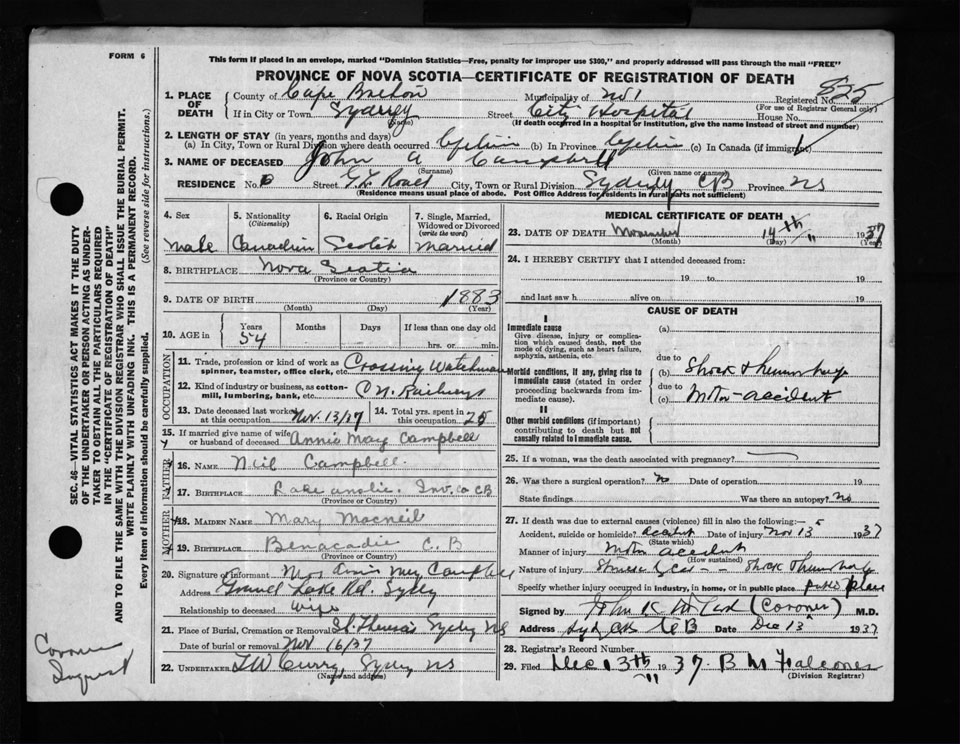 FORM 6
This form if placed in an envelope, marked "Dominion Statistics—Free, penalty for improper use $300," and properly addressed will pass through the mail "FREE"
PROVINCE OF NOVA SCOTIA—CERTIFICATE OF REGISTRATION OF DEATH
SEC. 46—VITAL STATISTICS ACT MAKES IT THE DUTY OF THE UNDERTAKER OR PERSON ACTING AS UNDERTAKER TO OBTAIN ALL THE PARTICULARS REQUIRED IN THE "CERTIFICATE OF REGISTRATION OF DEATH"
AND TO FILE THE SAME WITH THE DIVISION REGISTRAR WHO SHALL ISSUE THE BURIAL PERMIT.
WRITE PLAINLY WITH UNFADING INK. THIS IS A PERMANENT RECORD.
Every item of information should be carefully supplied. (See reverse side for instructions.)
1. PLACE OF DEATH County of Cape Breton Municipality of No 1 Registered No. 825
(For use of Registrar General only)
If in City or Town Sydney Street City Hospital House No.
(Name) (If death occurred in a hospital or institution, give the name instead of street and number)
2. LENGTH OF STAY (in years, months and days)
(a) In City, Town or Rural Division where death occurred Lifetime (b) In Province Lifetime (c) In Canada (if immigrant)
3. NAME OF DECEASED John A Campbell
(Surname) (Given name or names)
RESIDENCE No. Street G.L. Road City, Town or Rural Division Sydney CB Province NS
(Residence means usual place of abode. Post Office address for residents in rural parts not sufficient)
4. Sex 5. Nationality (Citizenship) 6. Racial Origin 7. Single, Married, Widowed or Divorced (write the word)
Male Canadian Scotish Married
8. BIRTHPLACE Nova Scotia
(Province or Country)
9. DATE OF BIRTH 1883
(Month) (Day) (Year)
10. AGE in Years Months Days If less than one day old
54 hrs. or min.
OCCUPATION
11. Trade, profession or kind of work as spinner, teamster, office clerk, etc. Crossing Watchman
12. Kind of industry or business, as cotton-mill, lumbering, bank, etc. C.N. Railways
13. Date deceased last worked at this occupation Nov. 13/37 14. Total yrs. spent in this occupation 25
15. If married give name of wife or husband of deceased Annie May Campbell
FATHER
16. NAME Neil Campbell.
17. BIRTHPLACE Lake Inv. Co CB
(Province or Country)
MOTHER
18. MAIDEN NAME Mary Macneil
19. BIRTHPLACE Benacadie C.B
(Province or Country)
20. Signature of informant Mrs Annie May Campbell
Address Grand Lake Rd. Sydney
Relationship to deceased wife
21. Place of Burial, Cremation or Removal St. Theresa's Sydney NS
Date of burial or removal Nov 16/37
22. UNDERTAKER T W Curry, Sydney NS
(Name and address)
Coroner
Inquest
MEDICAL CERTIFICATE OF DEATH
23. DATE OF DEATH November 14th 1937
(Month) (Day) (Year)
24. I HEREBY CERTIFY that I attended deceased from:
19 to 19
and last saw h alive on 19
CAUSE OF DEATH
I
Immediate cause
Give disease, injury or complication which caused death, not the mode of dying, such as heart failure, asphyxia, asthenia, etc.
(a)
due to
Morbid conditions, if any, giving rise to immediate cause (stated in order proceeding backwards from immediate cause).
(b) Shock & hemorrhage
due to
(c) Motor-accident
II
Other morbid conditions (if important) contributing to death but not causally related to immediate cause.
25. If a woman, was the death associated with pregnancy?
26. Was there a surgical operation? No Date of operation 19
State findings Was there an autopsy? No
27. If death was due to external causes (violence) fill in also the following:—
Accident, suicide or homicide? Accident Date of injury Nov 13 1937
(State which)
Manner of injury Motor accident
(How sustained)
Nature of injury Shock & hemorrhage
Specify whether injury occurred in industry, in home, or in public place public place
Signed by John K (Coroner) M.D.
Address CB Date Dec 13 1937
28. Registrar's Record Number
29. Filed Dec 13th 1937. B M Falconer
(Division Registrar)